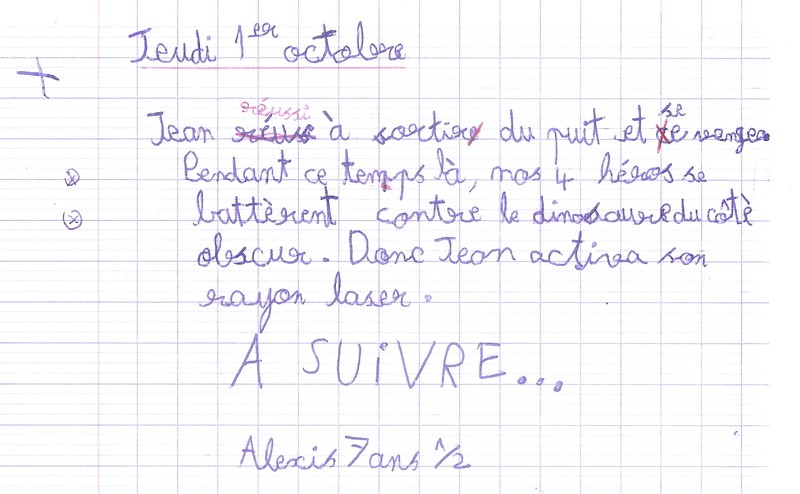 Jeudi 1er octobre
réussi se
Jean à sortir du puit et vengea
Pendant ce temps là, nos 4 héros se
battèrent contre le dinosaure du côtè
obscur. Donc Jean activa son
rayon laser.
A SUiVRE...
Alexis 7 ans 1/2